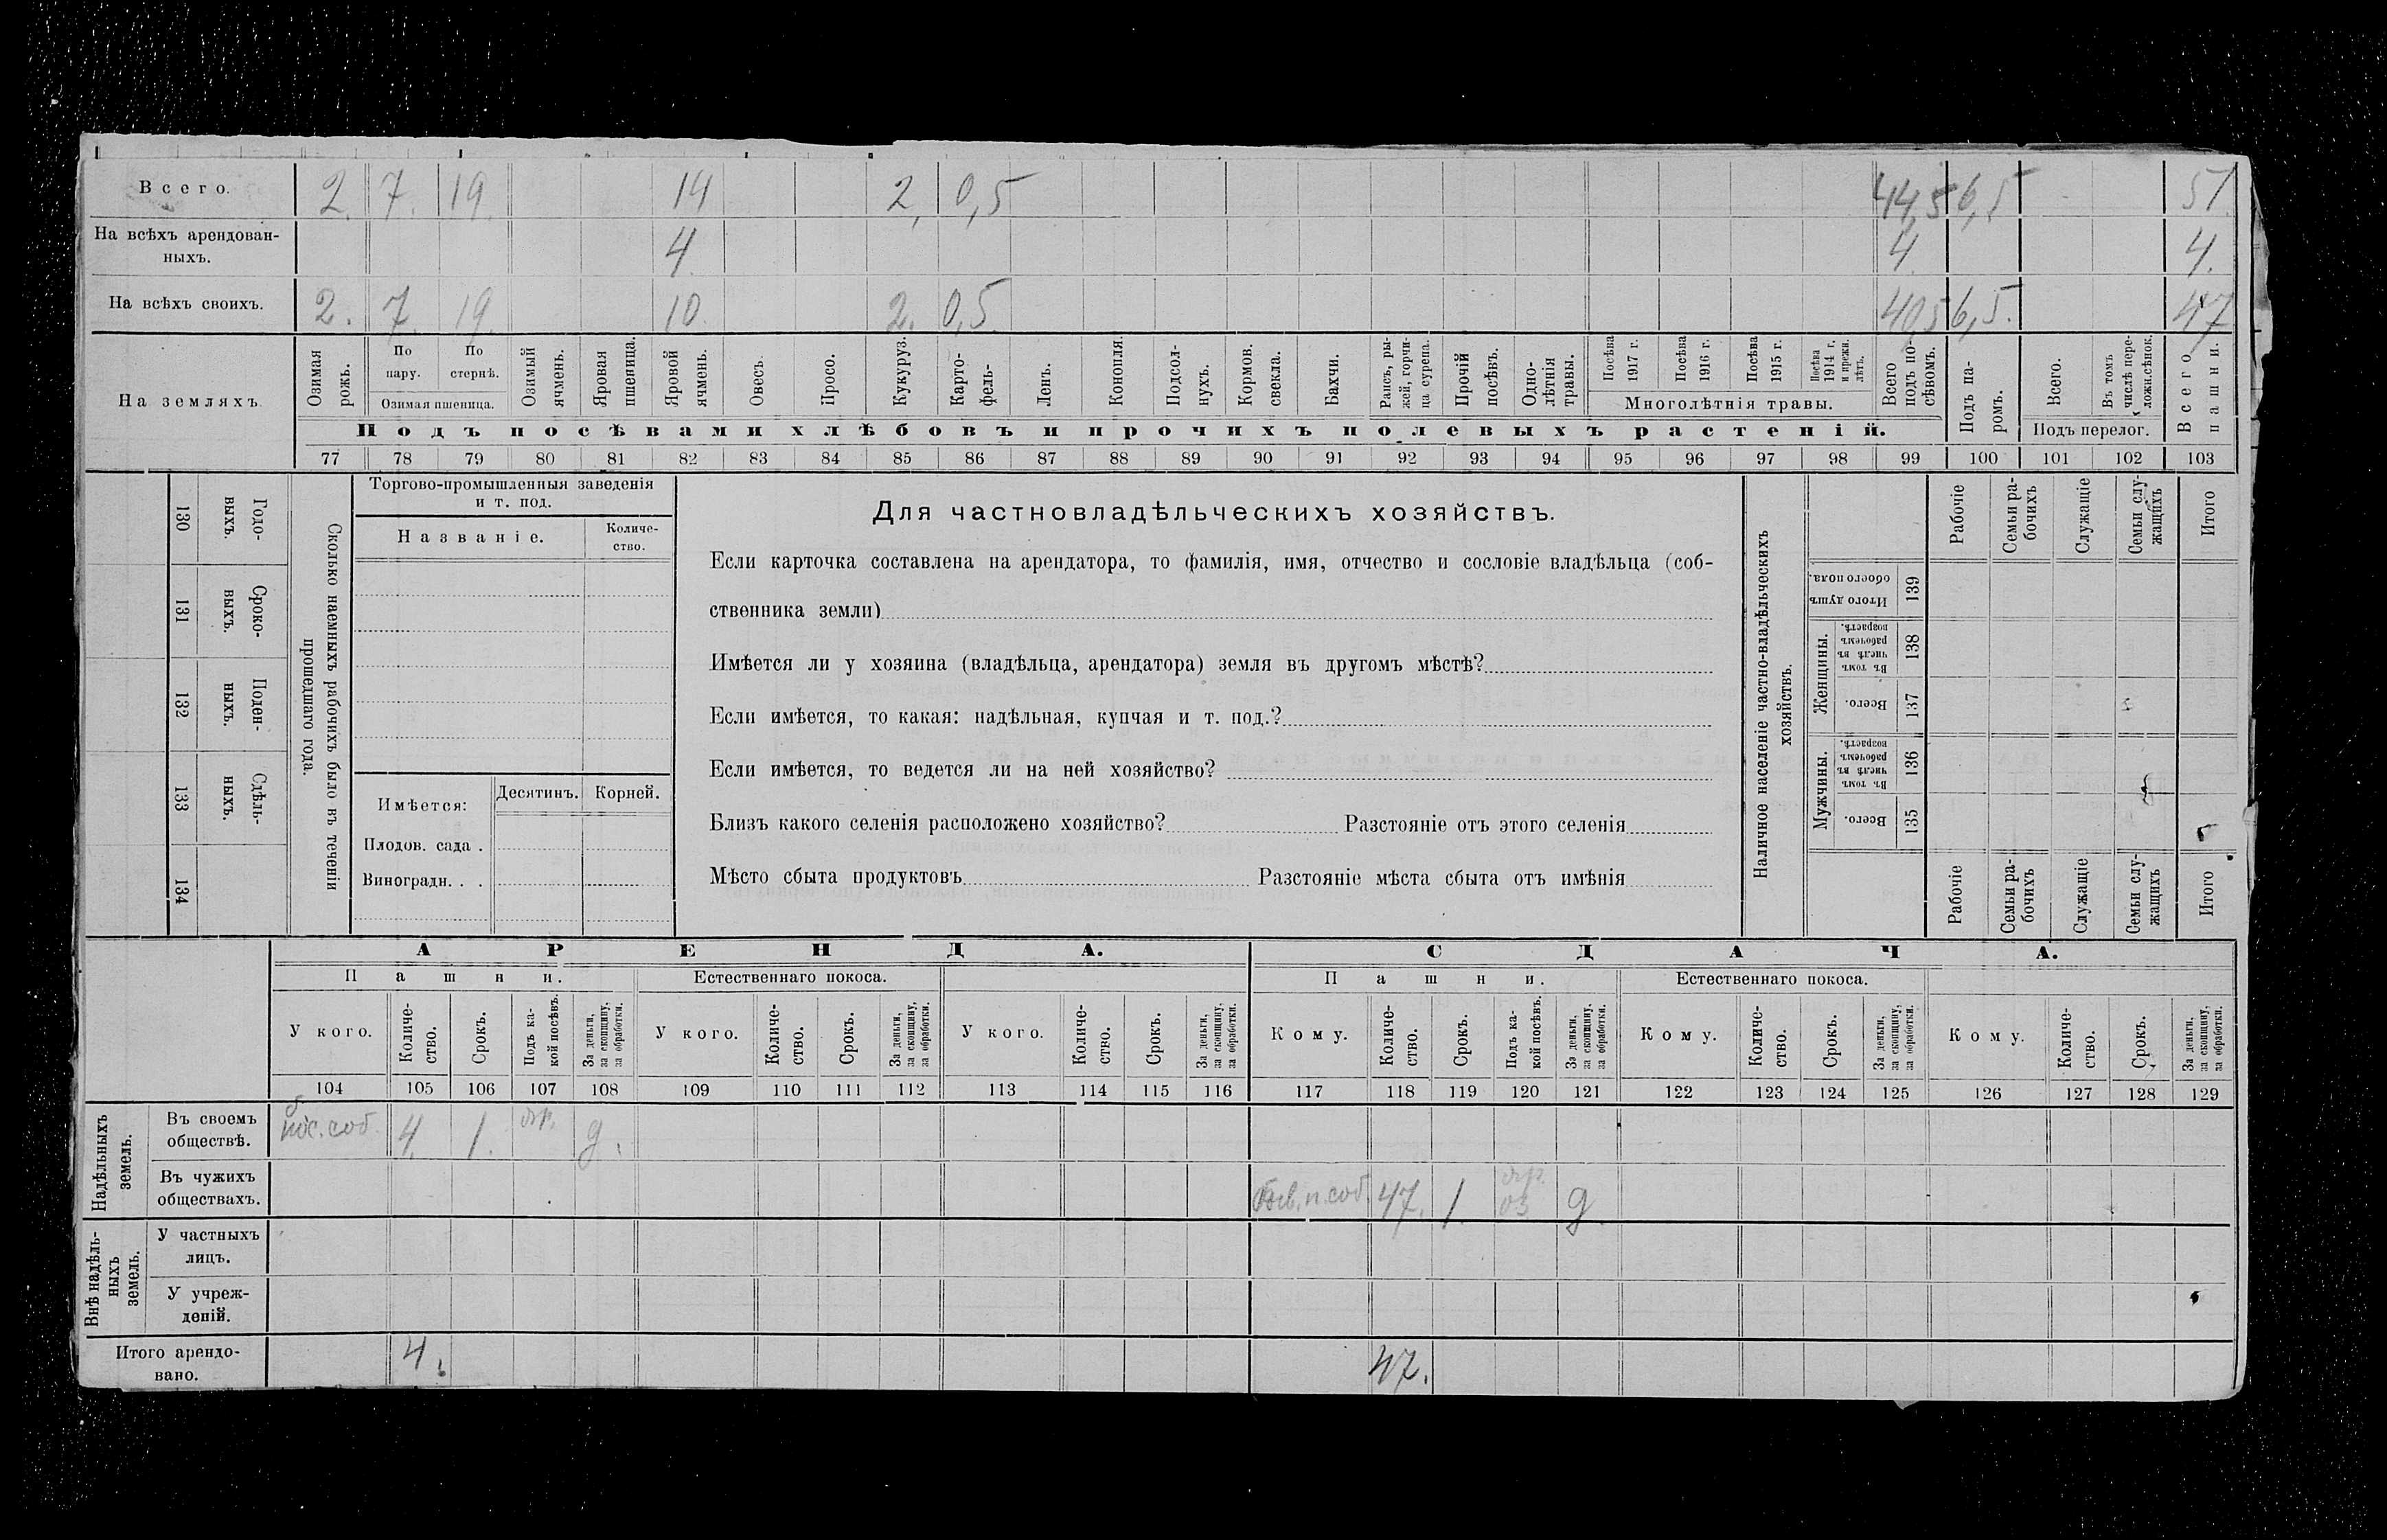 Всего. 2. 7. 19. 14 2, 0,5 44,5 6,5 51
На всѣхъ арендован-
ныхъ. 4 4 4.
На всѣхъ своихъ. 2. 7. 19. 10. 2. 0,5. 40,5 6,5. 47
На земляхъ
Озимая
рожь.
По
пару.
По
стернѣ.
Озимая пшеница.
Озимый
ячмень.
Яровая
пшеница.
Яровой
ячмень.
Овесъ.
Просо.
Кукуруз.
Карто-
фель-
Ленъ.
Конопля.
Подсол-
нухъ.
Кормов.
свекла.
Бахчи.
Рапсъ, ры-
жей, горчи-
ца сурепа.
Прочій
посѣвъ.
Одно-
лѣтнія
травы.
Посѣва
1917 г.
Посѣва
1916 г.
Посѣва
1915 г.
Посѣва
1914 г.
и прежн.
лѣтъ.
Многолѣтнія травы.
Всего
подъ по-
сѣвомъ.
Подъ па-
ромъ.
Всего.
Въ томъ
числѣ пере-
ложн.сѣнок.
Подъ перелог.
Всего
пашни.
Подъ посѣвами хлѣбовъ и прочихъ полевыхъ растеній.
77 78 79 80 81 82 83 84 85 86 87 88 89 90 91 92 93 94 95 96 97 98 99 100 101 102 103
130
Годо-
выхъ.
131
Сроко-
выхъ.
132
Поден-
ныхъ.
133
Сдѣль-
ныхъ.
134
Сколько наемныхъ рабочихъ было въ теченіи
прошедшаго года.
Торгово-промышленныя заведенія
и т. под.
Названіе.
Количе-
ство.
Имѣется:
Десятинъ. Корней.
Плодов. сада .
Виноградн. . .
Для частновладѣльческихъ хозяйствъ.
Если карточка составлена на арендатора, то фамилія, имя, отчество и сословіе владѣльца (соб-
ственника земли)
Имѣется ли у хозяина (владѣльца, арендатора) земля въ другомъ мѣстѣ?
Если имѣется, то какая: надѣльная, купчая и т. под.?
Если имѣется, то ведется ли на ней хозяйство?
Близъ какого селенія расположено хозяйство? Разстояніе отъ этого селенія
Мѣсто сбыта продуктовъ Разстояніе мѣста сбыта отъ имѣнія
Наличное населеніе частно-владѣльческихъ
хозяйствъ.
Рабочіе
Семьи ра-
бочихъ
Служащіе
Семьи слу-
жащихъ
Итого
Итого душъ
обоего пола.
139
Женщины.
Въ томъ
числѣ въ
рабочемъ
возрастѣ.
138
Всего.
137
Мужчины.
Въ томъ
числѣ въ
рабочемъ
возрастѣ.
136
Всего.
135
Рабочіе
Семьи ра-
бочихъ
Служащіе
Семьи слу-
жащихъ
Итого
АРЕНДА.
Пашни.
Естественнаго покоса.
У кого.
Количе-
ство.
Срокъ.
Подъ ка-
кой посѣвъ.
За деньги,
за скопщину,
за обработки.
У кого.
Количе-
ство.
Срокъ.
За деньги,
за скопщину,
за обработки.
У кого.
Количе-
ство.
Срокъ.
За деньги,
за скопщину,
за обработки.
СДАЧА.
Пашни.
Естественнаго покоса.
Кому.
Количе-
ство.
Срокъ.
Подъ ка-
кой посѣвъ.
За деньги,
за скопщину,
за обработки.
Кому.
Количе-
ство.
Срокъ.
За деньги,
за скопщину,
за обработки.
Кому.
Количе-
ство.
Срокъ.
За деньги,
за скопщину,
за обработки.
104 105 106 107 108 109 110 111 112 113 114 115 116 117 118 119 120 121 122 123 124 125 126 127 128 129
Надѣльныхъ
земель.
Въ своемъ
обществѣ. 4. 1. яр. д.
Въ чужихъ
обществахъ. 47. 1. яр.
оз д.
Внѣ надѣль-
ныхъ
земель.
У частныхъ
лицъ.
У учреж-
деній.
Итого арендо-
вано. 4. 47.